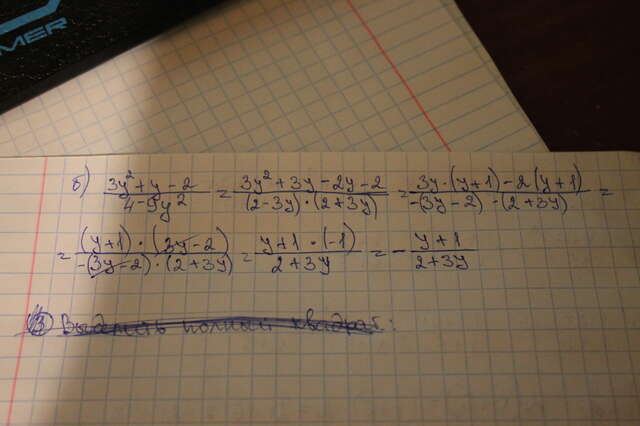 б) (3y² + y - 2)/(4 - 9y²) = (3y² + 3y - 2y - 2)/((2 - 3y) · (2 + 3y)) = (3y · (y + 1) - 2(y + 1))/(-(3y - 2) · (2 + 3y)) =
= (y + 1) · (3y - 2)/(-(3y - 2) · (2 + 3y)) = (y + 1 · (-1))/(2 + 3y) = - (y + 1)/(2 + 3y)
MER